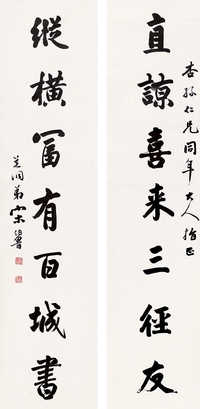 杏孙仁兄同年大人指正
直諒喜来三徑友
縱橫富有百城書
芝洞弟宋伯魯